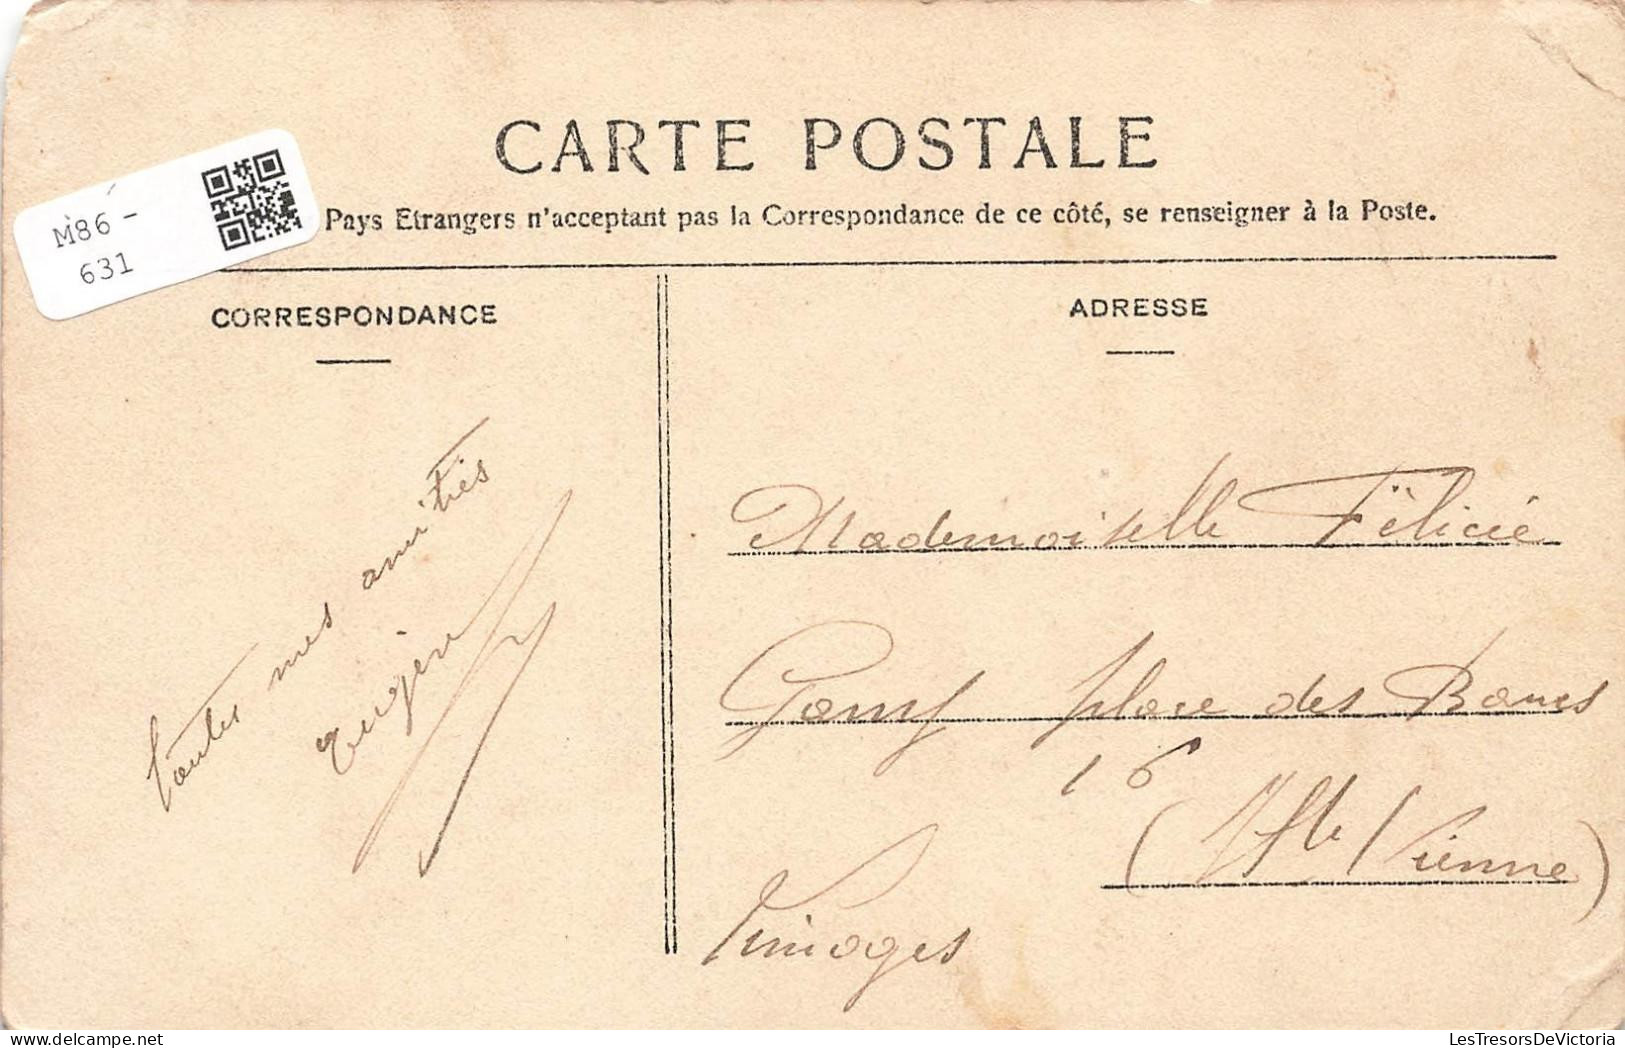 CARTE POSTALE
Pays Etrangers n'acceptant pas la Correspondance de ce côté, se renseigner à la Poste.
M86 -
631
CORRESPONDANCE
ADRESSE
toutes mes amitiés
Mademoiselle Félicie
place des Bancs
16
(Hte Vienne)
Limoges
LesTresorsDeVictoria